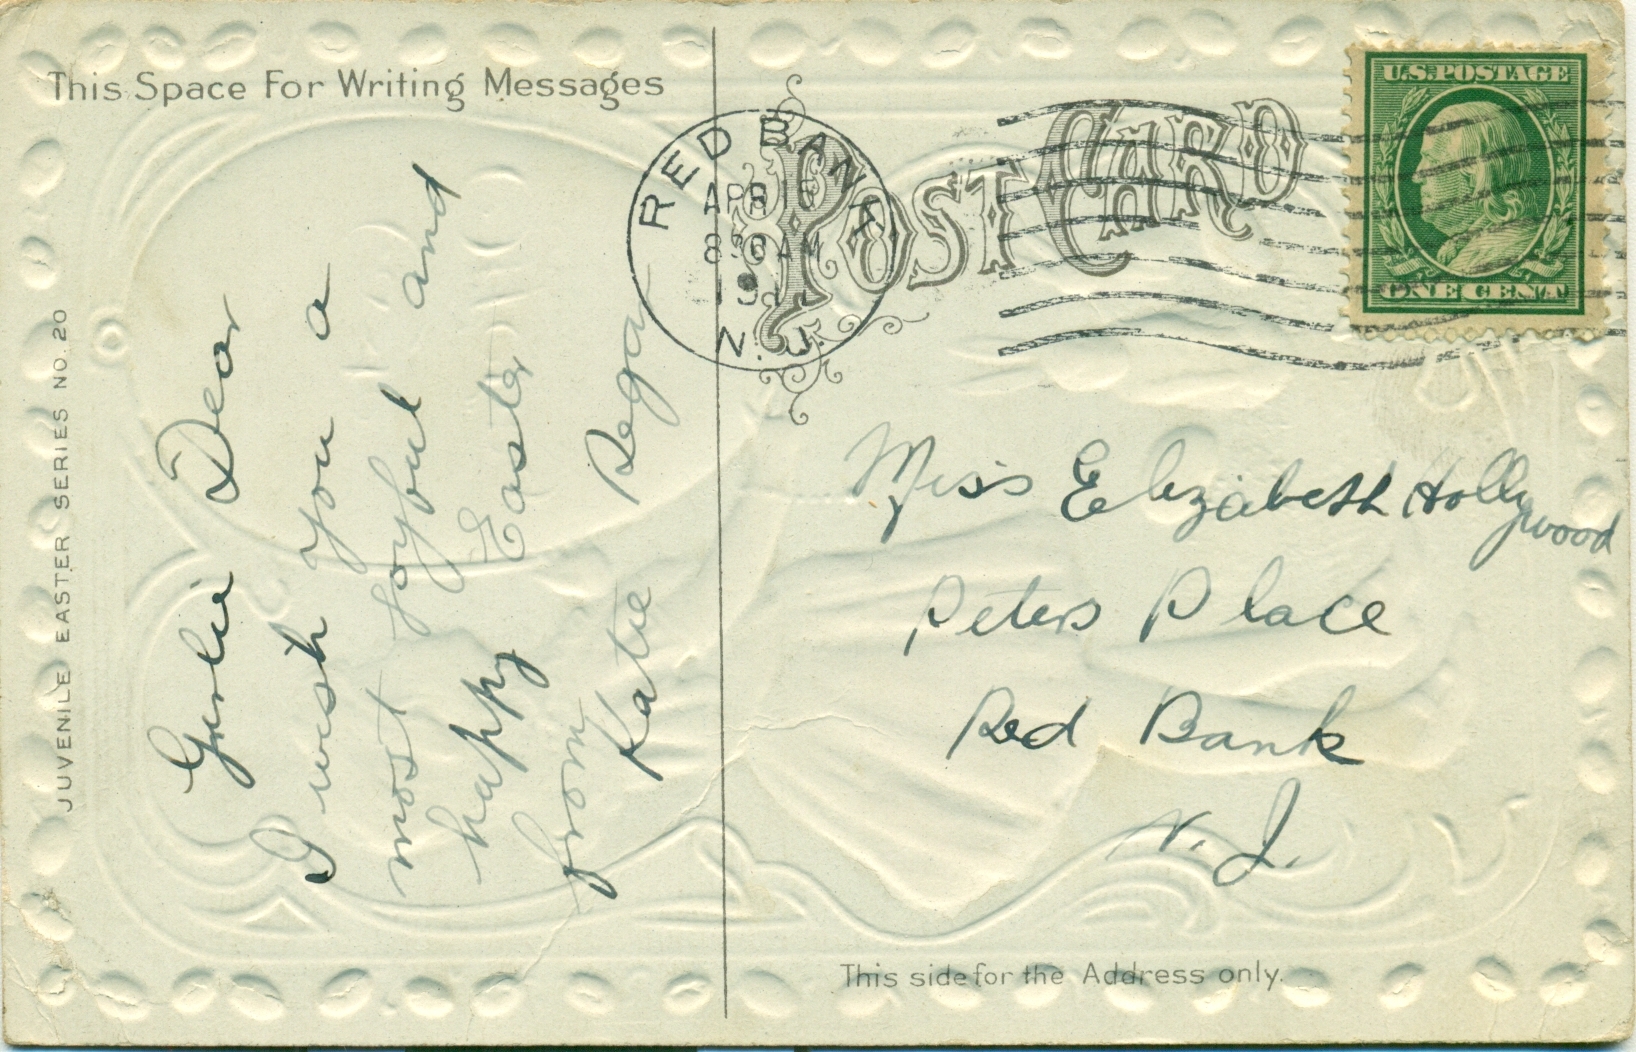 This Space For Writing Messages
Girlie Dear
I wish you a
most joyful and
happy Easter
from
Katie Regan
JUVENILE EASTER SERIES NO. 20
POST CARD
RED BANK
APR
8 30 AM
N.J.
U.S. POSTAGE
ONE CENT
Miss Elizabeth Hollywood
Peters Place
Red Bank
N. J.
This side for the Address only.